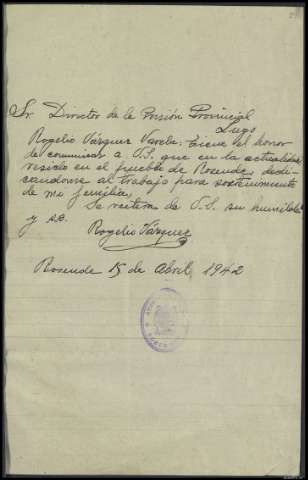 Sr. Director de la Prisión Provincial
Lugo
Rogelio Vázquez Varela: Tiene el honor
de comunicar a V.S. que en la actualidad
resido en el pueblo de Rosende, dedi-
candome al trabajo para sostenimiento
de mi familia,
Se reitera de V.S. su humilde
y s.s.
Rogelio Vázquez
Rosende 15 de Abril 1942